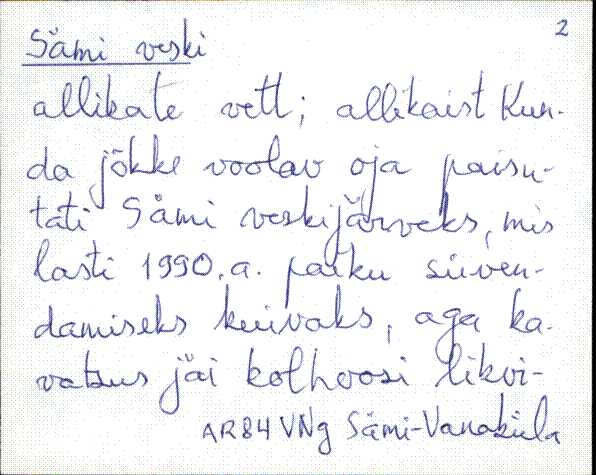 2
Sämi veski
allikate vett; allikaist Kun-
da jõkke voolav oja paisu-
tati Sämi veskijärveks, mis
lasti 1990. a. paiku süven-
damiseks kuivaks, aga ka-
vatsus jäi kolhoosi likvi-
AR84 VNg Sämi-Vanaküla